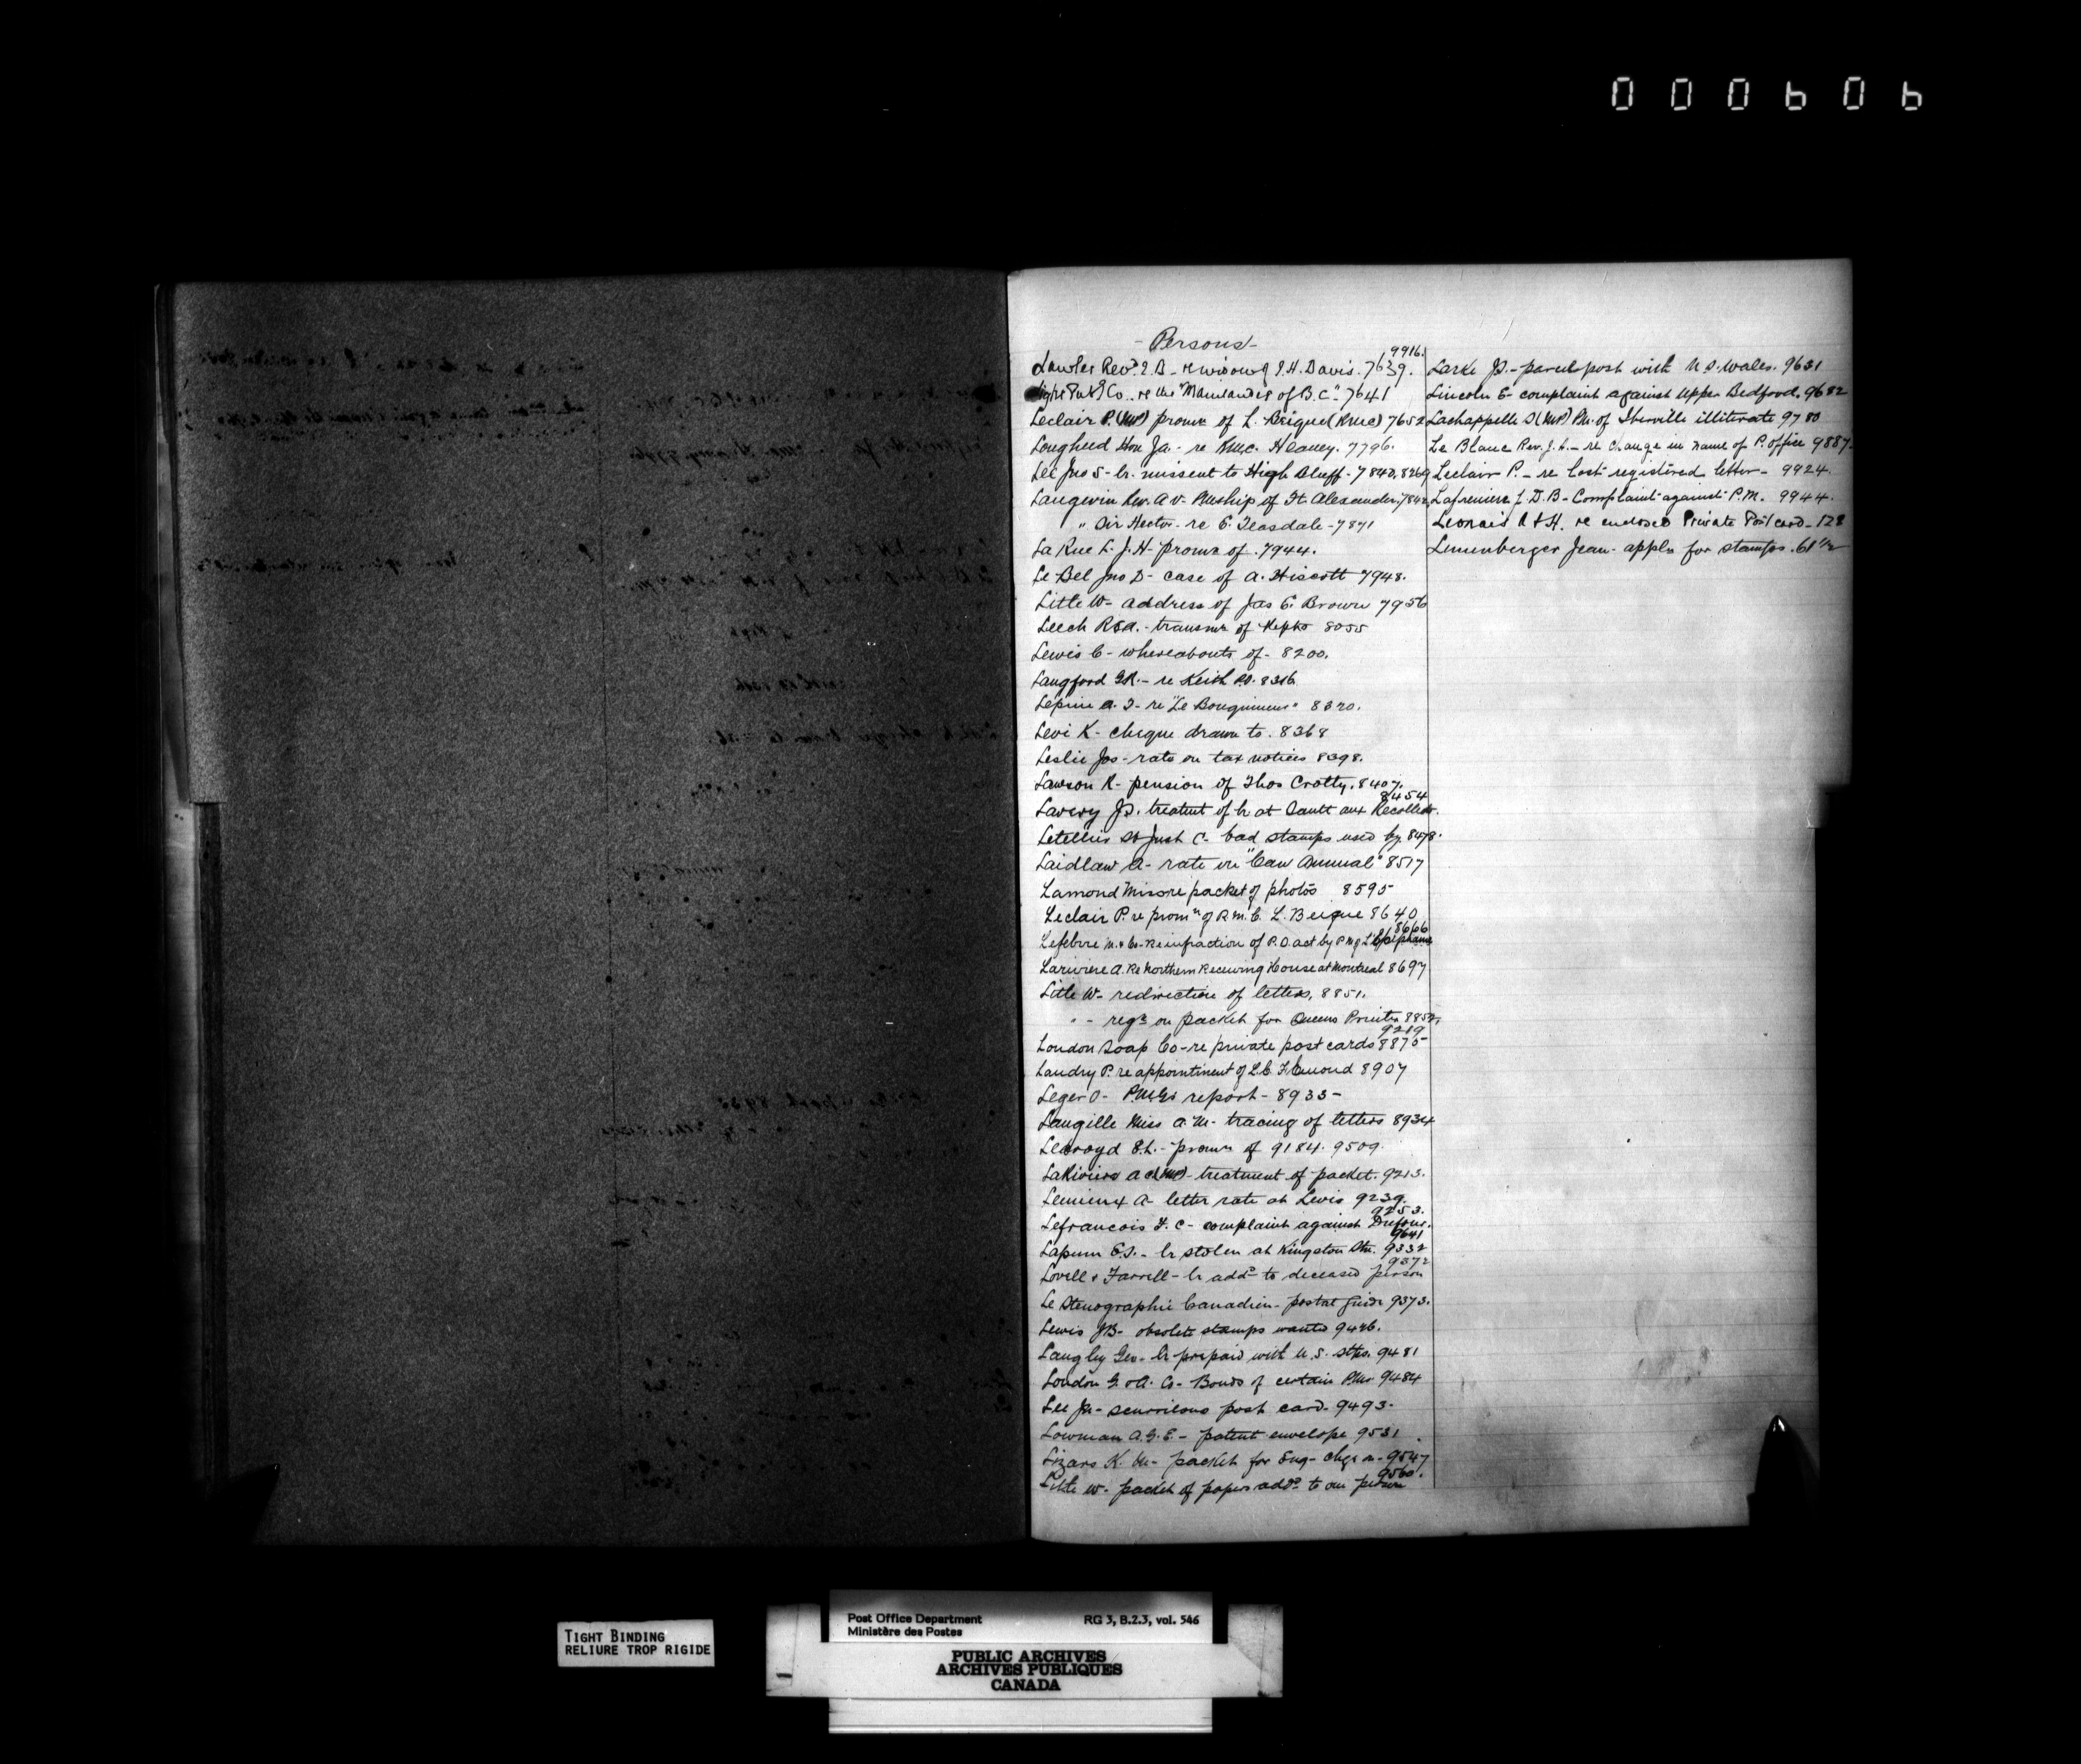 000606
- Persons -
9916.
Lawler Rev. J. B. re widow of J. H. Davis. 7639.
Co. re the "Mainlander of B.C." 7641
Leclair P. (MP) promn of L. Beique (RMC) 7652
Lougheed Hon Ja. - re RMC. Heaney. 7796.
Lee Jno S - lr. missent to High Bluff - 7840. 8269
Langevin Rev. A V - PMship of St Alexander. 7842
" Sir Hector - re E. Teasdale - 7871
La Rue L. J. H - promn of . 7944.
Le Bel Jno D - case of A. Hiscott 7948.
Little W - address of Jas E. Brown 7956
Leech R E A. - transmn of 8055
Lewis C - whereabouts of - 8200.
Langford G R. - re Keith PO. 8316
Lepine A. T - re "Le " 8320.
Levi K - cheque drawn to . 8368
Leslie Jos - rate on tax notices 8398.
Lawson R - pension of Thos Crotty. 8407.
8454
Lavery Jo. treatmt of lr at Sault aux Recollets.
Letellier St Just C. bad stamps used by. 8478.
Laidlaw A - rate on "Can Annual" 8517
Lamond Miss re packet of photos 8595
Leclair P. re promn of R.M.C. L. Beique 8640
8666
Lefebvre M. & Co - Re infraction of P.O. act by P M of L'Epiphanie
Lariviere A. Re Northern Receiving House at Montreal 8697
Little W - redirection of letters, 8851.
" - regn on packet for Queens Printer 8852.
9219
London Soap Co - re private post cards 8875
Landry P. re appointment of L.C. 8907
Leger O - P.M.G's report - 8933 -
Langille Miss A. M - tracing of letters 8934
Learoyd E. L. - promn of 9184. 9509.
LaRiviere A C (MP) - treatment of packet. 9213.
Lemieux A - letter rate at Levis 9239.
9253.
Lefrancois F. C - complaint against Dufour.
9641
Lapum E. S. - lr stolen at Kingston Stn. 9332
9372
Lovell & Farrell - lr addd to deceased person
Le Stenographie Canadien - postal guide 9373.
Lewis J B - obsolete stamps wanted 9426.
Langley Geo - lr prepaid with U.S. stps. 9481
London G. & A. Co - Bonds of certain PMrs 9484
Lee Ja - scurrilous post card. 9493.
Lowman A. G. E - patent envelope 9531
Lizars K. M - packet for Eng - chgs on - 9547
9560.
Little W - packet of papers addd to one person
Larke Jo. - parcel post with N. S. Wales. 9631
Lincoln E - complaint against Upper Bedford. 9682
Lachappelle S (MP) PM. of Iberville illiterate 9780
Le Blanc Rev. J. L. - re Change in name of P. office 9887.
Leclair P. - re lost registered letter - 9924.
Lafreniere J. D. B - Complaint against P.M. 9944.
Leonais A & H. re enclosed Private Post card - 128
Lemenberger Jean - appln for stamps. 61 1/2
TIGHT BINDING
RELIURE TROP RIGIDE
Post Office Department
Ministère des Postes
RG 3, B.2.3, vol. 546
PUBLIC ARCHIVES
ARCHIVES PUBLIQUES
CANADA